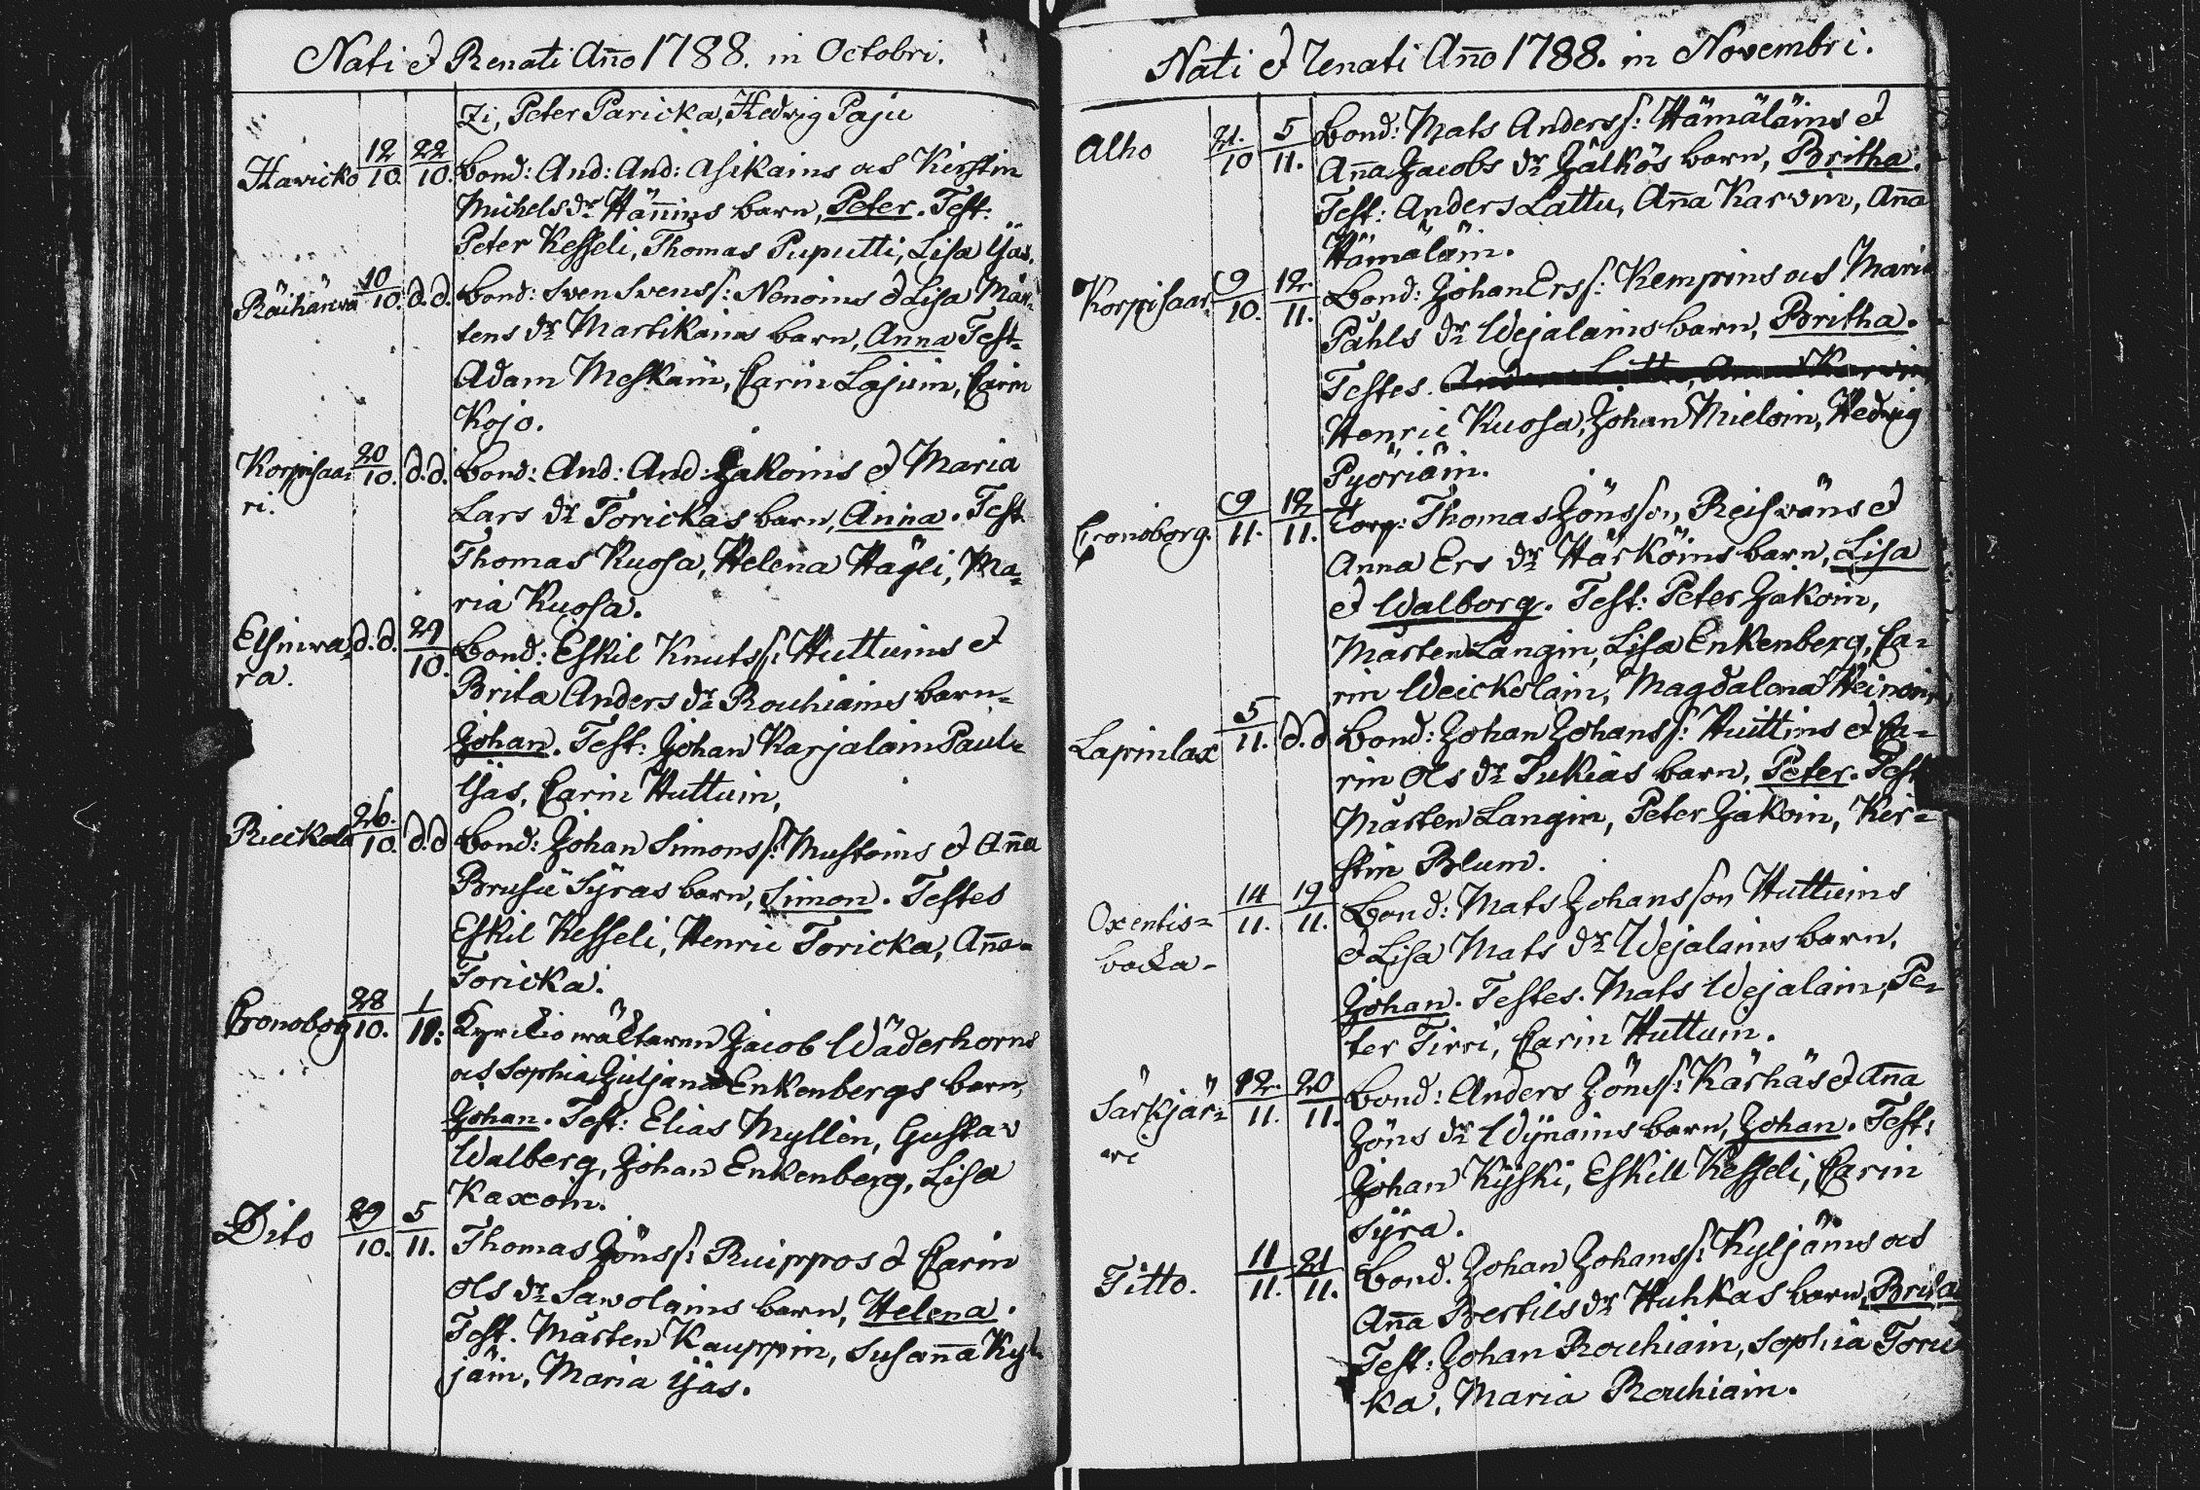 Nati et Renati Año 1788. in Octobri.
zi, Peter Paricka, Hedvig Paju
Havicko 12/10. 22/10. Bond: And: And: Asikains och Kirstin
Michels dr Hännins barn, Peter. Test:
Peter Kesseli, Thomas Puputti, Lisa Ijäs.
Räihäwa 10/10. d.d. Bond: Swen Svenss: Nenoins et Lisa Mår-
tens dr Martikains barn, Anna Test-
Adam Meskain, Carin Lajuin, Carin
Kojo.
Korpisaa- 20/10. d.d. Bond: And: And: Jakoins et Maria
ri. Lars dr Torickas barn, Anna. Test.
Thomas Kuosa, Helena Hägli, Ma-
ria Kuosa.
Elsinwa- d.d. 29/10. Bond: Eskil Knutss: Huttuins et
ra. Brita Anders dr Rouhiains barn-
Johan. Test: Johan Karjalain Paul-
Ijäs, Carin Huttuin,
Rieckala 26./10. d.d Bond: Johan Simonss: Mustoins et Aña
Brusii Syras barn, Simon. Testes
Eskil Kesseli, Henric Toricka, Aña-
Toricka.
Cronobog 28/10. 1/11: Kyrckiowäcktaren Jacob Wäderhorns
och Sophia Juljana Enkenbergs barn,
Johan. Test: Elias Myllén, Gustav
Walberg, Johan Enkenberg, Lisa
Kaxoin.
Dito 29/10. 5/11. Thomas Jönss: Ruippos et Carin
Ols dr Sawolains barn, Helena.
Test. Mårten Kauppin, Susaña Kyl-
jäin, Maria Ijäs.
Nati et renati Año 1788. in Novembri.
Alho 21./10 5/11. Bond: Mats Anderss: Hämäläins et
Aña Jacobs dr Jälkös barn, Britha.
Test: Anders Lattu, Aña Karvin, Aña
Hämäläin.
Korpisaar. 9/10. 12./11. Bond: Johan Erss: Kempins och Maria
Påhls dr Wejalains barn, Britha.
Testes. Anders Lattu, Anna Karvin
Henric Kuosa, Johan Mieloin, Hedvig
Pyöriäin.
Cronoborg. 9/11. 12/11. Torp: Thomas Jönsson Reiswäns et
Anna Ers dr Härköins barn, Lisa
et Walborg. Test: Peter Jakoin,
Mårten Langin, Lisa Enkenberg, Ca-
rin Weickolain, Magdalena Heinoin,
Lapinlax 5/11. d.d Bond: Johan Johanss: Huittins et Ca-
rin Ols dr Tukias barn, Peter. Test
Mårten Langin, Peter Jakoin, Kir-
stin Blum.
Oxentis- 14/11. 19/11. Bond: Mats Johansson Huttuins
backa- et Lisa Mats dr Wejalains barn,
Johan. Testes. Mats Wejalain, Pe-
ter Tirri, Carin Huttuin.
Särkjär- 12./11. 20/11. Bond: Anders Jönss: Kärhäs et Aña
wi Jöns dr Wijnains barn, Johan. Test:
Johan Kijski, Eskill Kesseli, Carin
Syra.
Titto. 11/11. 21/11. Bond. Johan Johanss: Kyljäins och
Aña Bertils dr Huhkas barn, Brita
Test: Johan Rouhiain, Sophia Toric
ka, Maria Rouhiain.